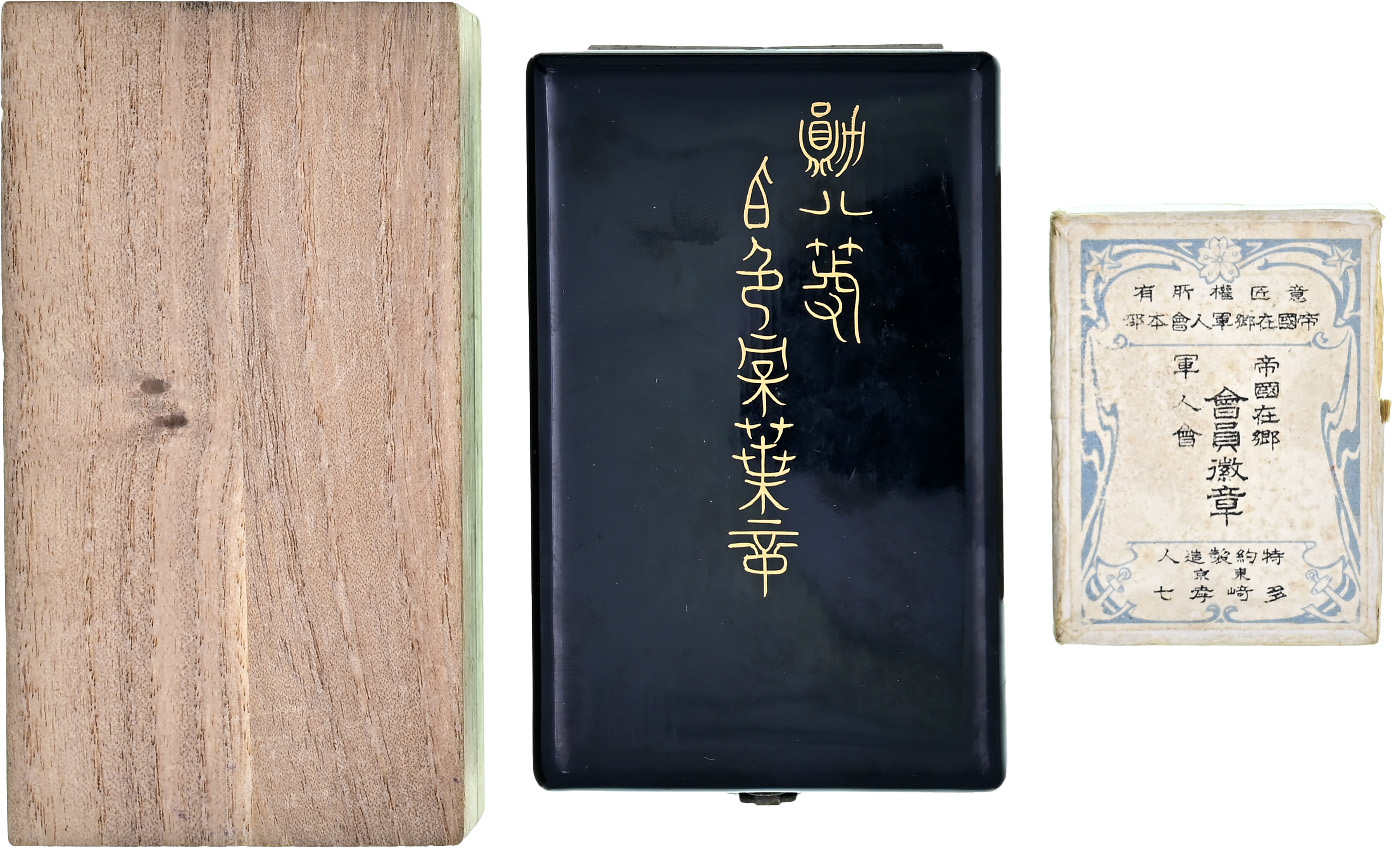 勳八等
白色桐葉章
意匠權所有
帝國在鄉軍人會本部
帝國在鄉
軍人會
會員徽章
特約製造人
東京
多崎孝七